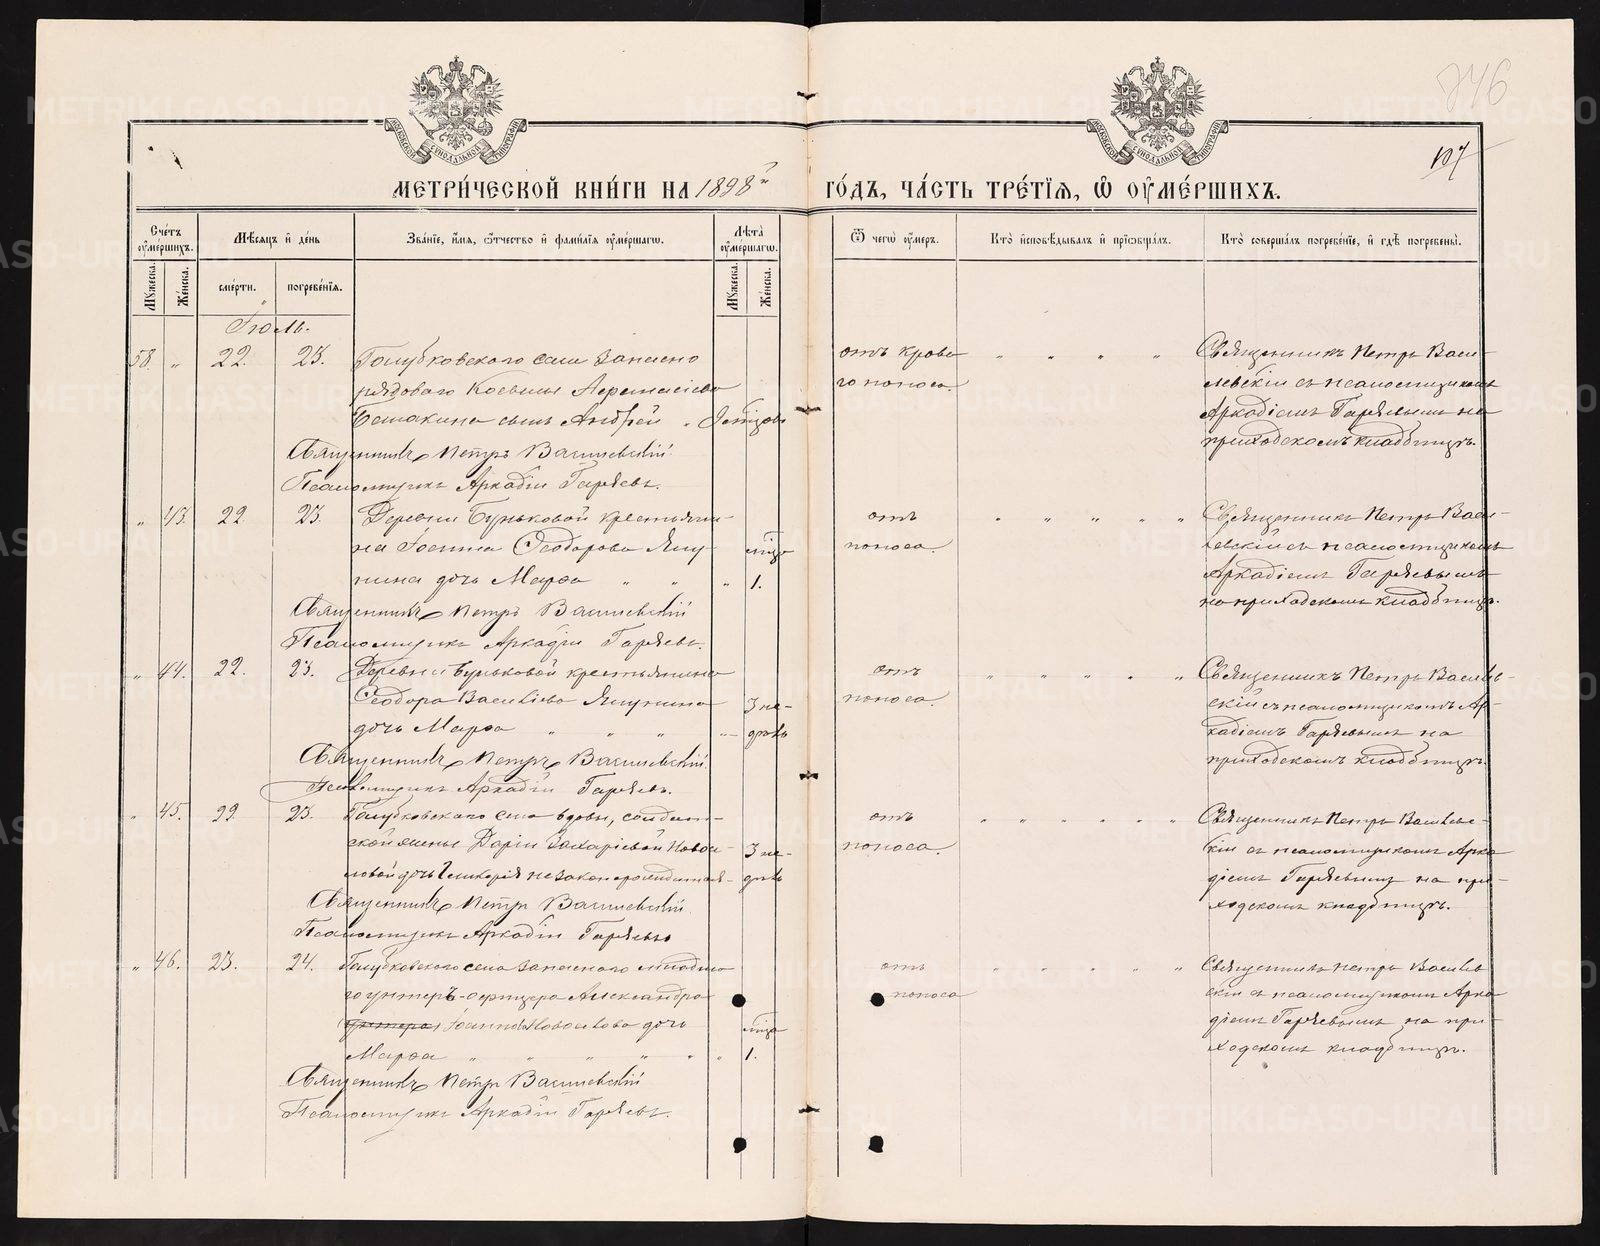 746
107
МЕТРИ́ЧЕСКОЙ КНИ́ГИ НА 1898й ГО́ДЪ, ЧА́СТЬ ТРЕ́ТЇѦ, Ѽ ОУ҆МЕ́РШИХЪ.
Сче́тъ оу҆ме́ршихъ.
Мѣ́сѧцъ и҆ де́нь
Зва́нїе, и҆́мѧ, ѻ҆́тчество и҆ фами́лїѧ оу҆ме́ршагѡ.
Лѣ́та оу҆ме́ршагѡ.
Ѿ чегѡ̀ оу҆́меръ.
Кто̀ и҆сповѣ́дывалъ и҆ прїѡбща́лъ.
Кто̀ соверша́лъ погребе́нїе, и҆ гдѣ̀ погребены̀.
Мꙋ́жеска.
Же́нска.
сме́рти.
погребе́нїѧ.
Мꙋ́жеска.
Же́нска.
Іюль.
58. " 22. 23. Голубковскаго села запасно
рядоваго Косьмы
сынъ Андрей
Священникъ Петръ Василевскій
Псаломщикъ Аркадій Гаряевъ.
отъ крова
го поноса.
Священникъ Петръ Васи-
левскій съ псаломщикомъ
Аркадіемъ Гаряевымъ на
приходскомъ кладбищѣ.
" 43. 22. 23. Деревни Буньковой крестьяни-
на Іоанна Ѳеодорова Яку-
нина дочь Марѳа " " " 1.
Священникъ Петръ Василевскій
Псаломщикъ Аркадій Гаряевъ.
отъ
поноса.
Священникъ Петръ Васи-
левскій съ псаломщикомъ
Аркадіемъ Гаряевымъ
на приходскомъ кладбищѣ.
" 44. 22. 23. Деревни Буньковой крестьянина
Ѳеодора Василіева Якунина 3 не-
дочь Марѳа " " " дѣль
Священникъ Петръ Василевскій
Псаломщикъ Аркадій Гаряевъ.
отъ
поноса.
Священникъ Петръ Василев-
скій съ псаломщикомъ Ар-
кадіемъ Гаряевымъ на
приходскомъ кладбищѣ.
" 45. 22. 23. Голубковскаго села вдовы, солдат-
ской жены Даріи Захаріевой Новосе- 3 не-
ловой дочь Гликерія незаконорожденная дѣль
Священникъ Петръ Василевскій
Псаломщикъ Аркадій Гаряевъ
отъ
поноса.
Священникъ Петръ Василевс-
кій съ псаломщикомъ Арка
діемъ Гаряевымъ на при-
ходскомъ кладбищѣ.
" 46. 23. 24. Голубковскаго села запаснаго младша
го унтеръ-офицера Александра
Іоаннова Новоселова дочь
Марѳа " " " " " 1.
Священникъ Петръ Василевскій
Псаломщикъ Аркадій Гаряевъ.
отъ
поноса
Священникъ Петръ Василев
скій съ псаломщикомъ Арка
діемъ Гаряевымъ на при-
ходскомъ кладбищѣ.